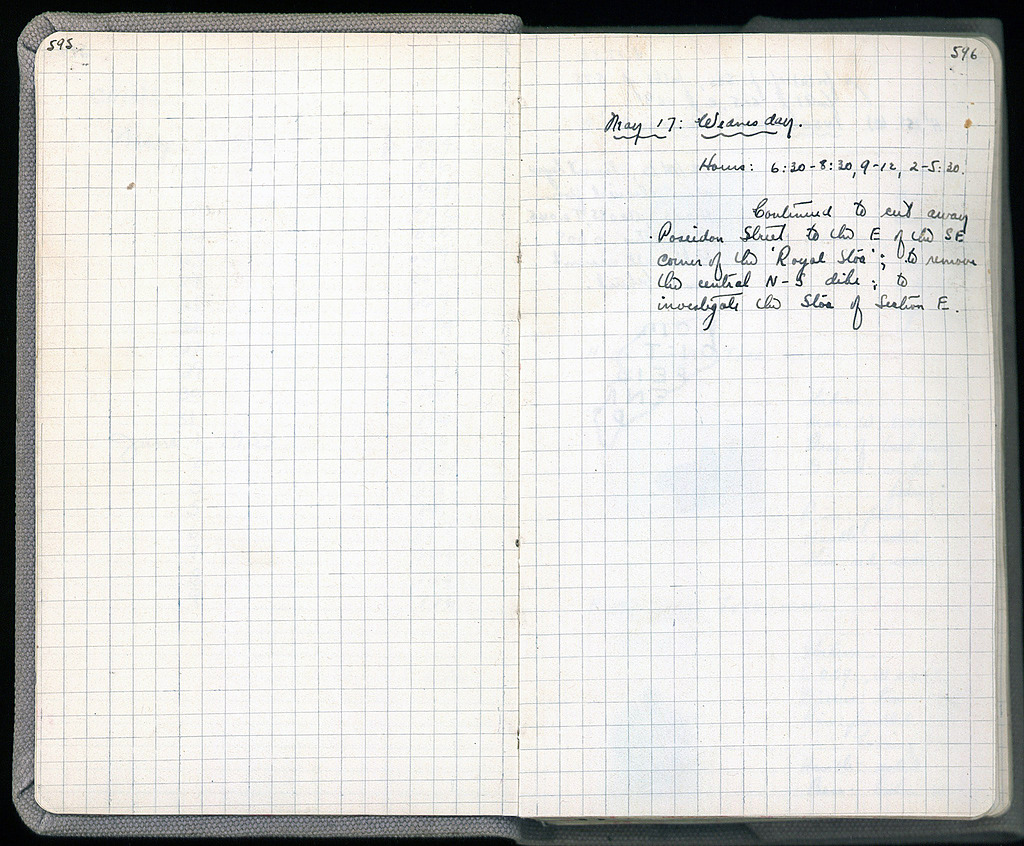 595.
596
May 17: Wednesday.
Hours: 6:30-8:30, 9-12, 2-5:30.
Continued to cut away
Poseidon Street to the E of the SE
corner of the 'Royal Stoa'; to remove
the central N-S dike; to
investigate the Stoa of Section E.